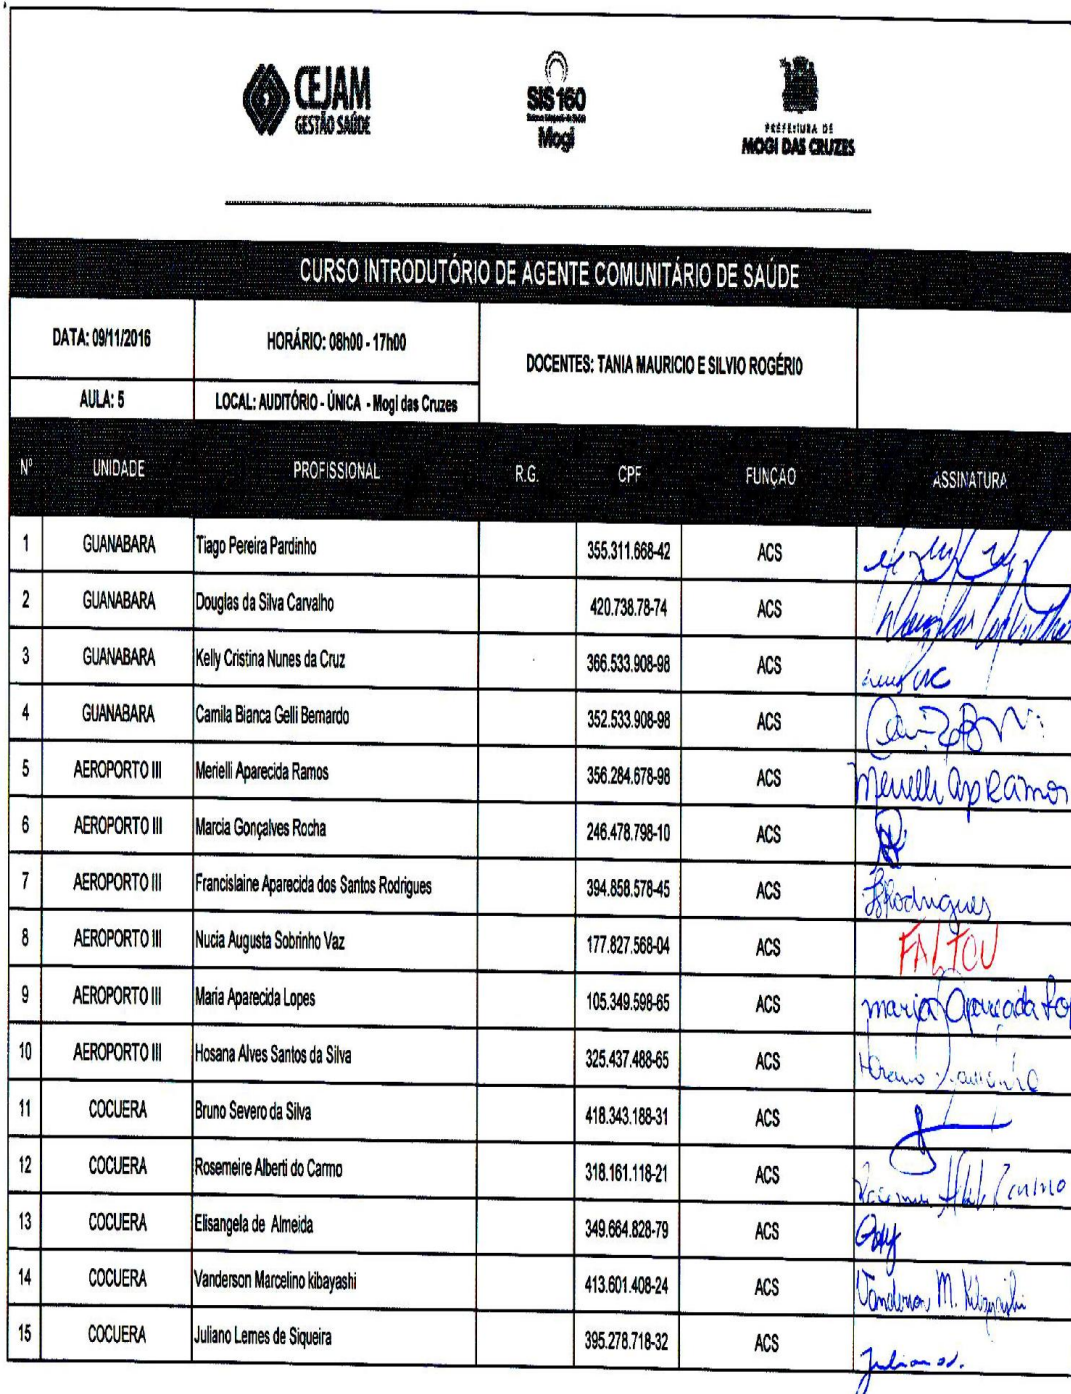 CEJAM
GESTÃO SAÚDE
SIS 160
Mogi
PREFEITURA DE
MOGI DAS CRUZES
CURSO INTRODUTÓRIO DE AGENTE COMUNITÁRIO DE SAÚDE
DATA: 09/11/2016 HORÁRIO: 08h00 - 17h00 DOCENTES: TANIA MAURICIO E SILVIO ROGÉRIO
AULA: 5 LOCAL: AUDITÓRIO - ÚNICA - Mogi das Cruzes
Nº UNIDADE PROFISSIONAL R.G. CPF FUNÇAO ASSINATURA
1 GUANABARA Tiago Pereira Pardinho 355.311.668-42 ACS
2 GUANABARA Douglas da Silva Carvalho 420.738.78-74 ACS Douglas Carvalho
3 GUANABARA Kelly Cristina Nunes da Cruz 366.533.908-98 ACS
4 GUANABARA Camila Bianca Gelli Bernardo 352.533.908-98 ACS
5 AEROPORTO III Merielli Aparecida Ramos 356.284.678-98 ACS Merielli Ap Ramos
6 AEROPORTO III Marcia Gonçalves Rocha 246.478.798-10 ACS
7 AEROPORTO III Francislaine Aparecida dos Santos Rodrigues 394.858.578-45 ACS Rodrigues
8 AEROPORTO III Nucia Augusta Sobrinho Vaz 177.827.568-04 ACS FALTOU
9 AEROPORTO III Maria Aparecida Lopes 105.349.598-65 ACS maria Aparecida Lop
10 AEROPORTO III Hosana Alves Santos da Silva 325.437.488-65 ACS
11 COCUERA Bruno Severo da Silva 418.343.188-31 ACS
12 COCUERA Rosemeire Alberti do Carmo 318.161.118-21 ACS
13 COCUERA Elisangela de Almeida 349.664.828-79 ACS
14 COCUERA Vanderson Marcelino kibayashi 413.601.408-24 ACS Vanderson M. Kibayashi
15 COCUERA Juliano Lemes de Siqueira 395.278.718-32 ACS